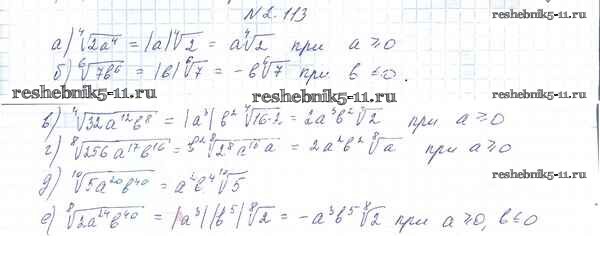 №2.113
reshebnik5-11.ru
а) ⁴√2a⁴ = |a|⁴√2 = a⁴√2 при a ≥ 0
б) ⁶√7b⁶ = |b|⁶√7 = -b⁶√7 при b ≤ 0.
reshebnik5-11.ru reshebnik5-11.ru
в) ⁴√32a¹²b⁸ = |a³|b² ⁴√16·2 = 2a³b² ⁴√2 при a ≥ 0
г) ⁸√256a¹⁷b¹⁶ = ⁸√2⁸a¹⁶a = 2a²b² ⁸√a при a ≥ 0
д) ¹⁰√5a²⁰b⁴⁰ = a²b⁴ ¹⁰√5
reshebnik5-11.ru
е) ⁸√2a²⁴b⁴⁰ = |a³||b⁵| ⁸√2 = -a³b⁵ ⁸√2 при a ≥ 0, b ≤ 0